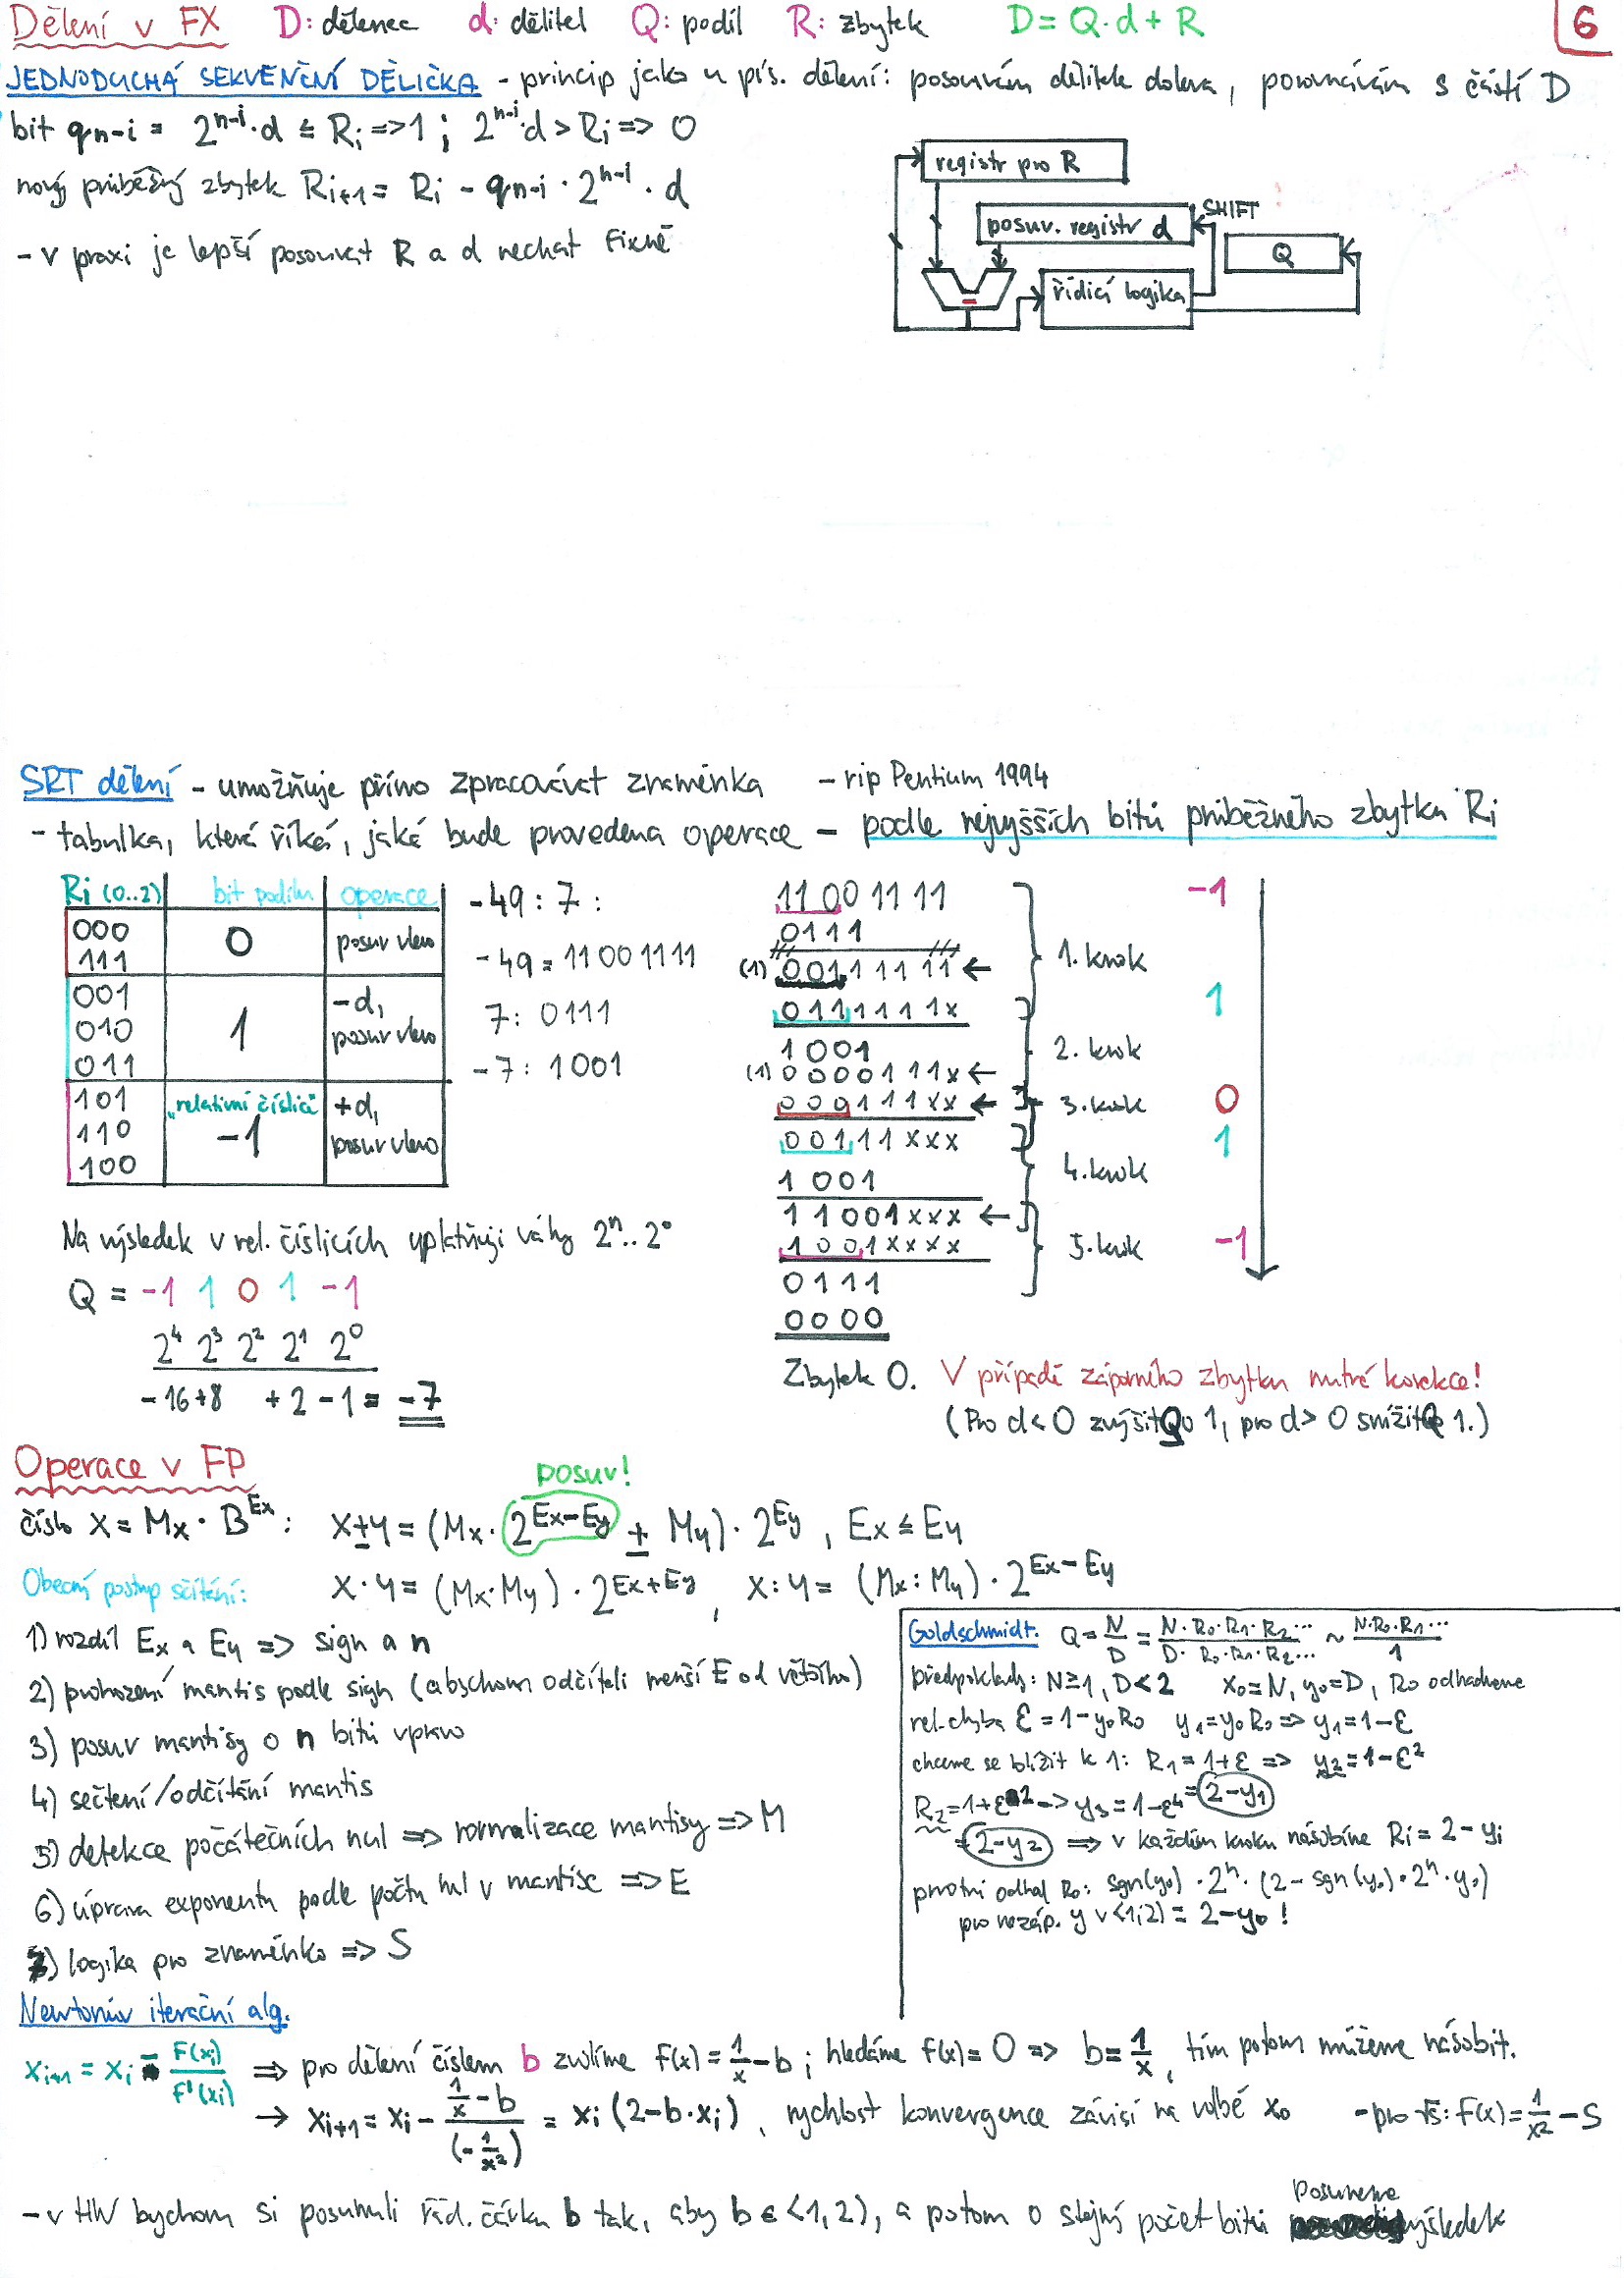 Dělení v FX D: dělenec d: dělitel Q: podíl R: zbytek D = Q·d + R 6
JEDNODUCHÁ SEKVENČNÍ DĚLIČKA - princip jako u pís. dělení: posouvám dělitele doleva, porovnávám s částí D
bit qn-i = 2^(n-i)·d ≤ Ri => 1 ; 2^(n-i)·d > Ri => 0
nový průběžný zbytek Ri+1 = Ri - qn-i · 2^(n-i) · d
- v praxi je lepší posouvat R a d nechat fixně
registr pro R
posuv. registr d
SHIFT
Q
řídicí logika
SRT dělení - umožňuje přímo zpracovávat znaménka - rip Pentium 1994
- tabulka, která říká, jaká bude provedena operace - podle nejvyšších bitů průběžného zbytku Ri
Ri (0..2) bit podílu operace
000
111
0 posuv vlevo
001
010
011
1 -d, posuv vlevo
101
110
100
"relativní číslice" -1 +d, posuv vlevo
-49 : 7 :
-49 = 11001111
7: 0111
-7: 1001
11001111
0111
(1) 00111111 ←
0111111x
1001
(1) 0000111x ←
000111xx ←
00111xxx
1001
11001xxx ←
1001xxxx
0111
0000
1. krok
2. krok
3. krok
4. krok
5. krok
-1
1
0
1
-1
Na výsledek v rel. číslicích uplatňuji váhy 2^n..2^0
Q = -1 1 0 1 -1
2^4 2^3 2^2 2^1 2^0
-16+8 +2 -1 = -7
Zbytek 0. V případě záporného zbytku nutná korekce!
(Pro d < 0 zvýšit Q o 1, pro d > 0 snížit Q 1.)
Operace v FP
posuv!
číslo X = Mx · B^Ex : X±Y = (Mx · 2^(Ex-Ey) ± My) · 2^Ey , Ex ≤ Ey
Obecný postup sčítání: X·Y = (Mx·My) · 2^(Ex+Ey) , X:Y = (Mx : My) · 2^(Ex-Ey)
1) rozdíl Ex a Ey => sign a n
2) prohození mantis podle sign (abychom odčítali menší E od většího)
3) posuv mantisy o n bitů vpravo
4) sečtení/odčítání mantis
5) detekce počátečních nul => normalizace mantisy => M
6) úprava exponentu podle počtu nul v mantise => E
7) logika pro znaménko => S
Goldschmidt. Q = N/D = N·R0·R1·R2.../D·R0·R1·R2... ~ N·R0·R1.../1
předpoklady: N≥1, D<2 x0=N, y0=D, R0 odhadneme
rel. chyba ε = 1-y0R0 y1 = y0R0 => y1 = 1-ε
chceme se blížit k 1: R1 = 1+ε => y2 = 1-ε²
R2 = 1+ε² -> y3 = 1-ε⁴ = 2-y1
= 2-y2 => v každém kroku násobíme Ri = 2-yi
prvotní odhad R0: sgn(y0) · 2^n · (2 - sgn(y0) · 2^n · y0)
pro nezáp. y v <1;2) = 2-y0 !
Newtonův iterační alg.
xi+1 = xi - F(xi)/F'(xi) => pro dělení číslem b zvolíme f(x) = 1/x - b ; hledáme f(x) = 0 => b = 1/x, tím potom můžeme násobit.
→ xi+1 = xi - (1/x - b)/(-1/x²) = xi (2 - b·xi), rychlost konvergence závisí na volbě x0 - pro √S: f(x) = 1/x² - S
- v HW bychom si posunuli řád. čárku b tak, aby b ∈ <1, 2), a potom o stejný počet bitů posuneme výsledek